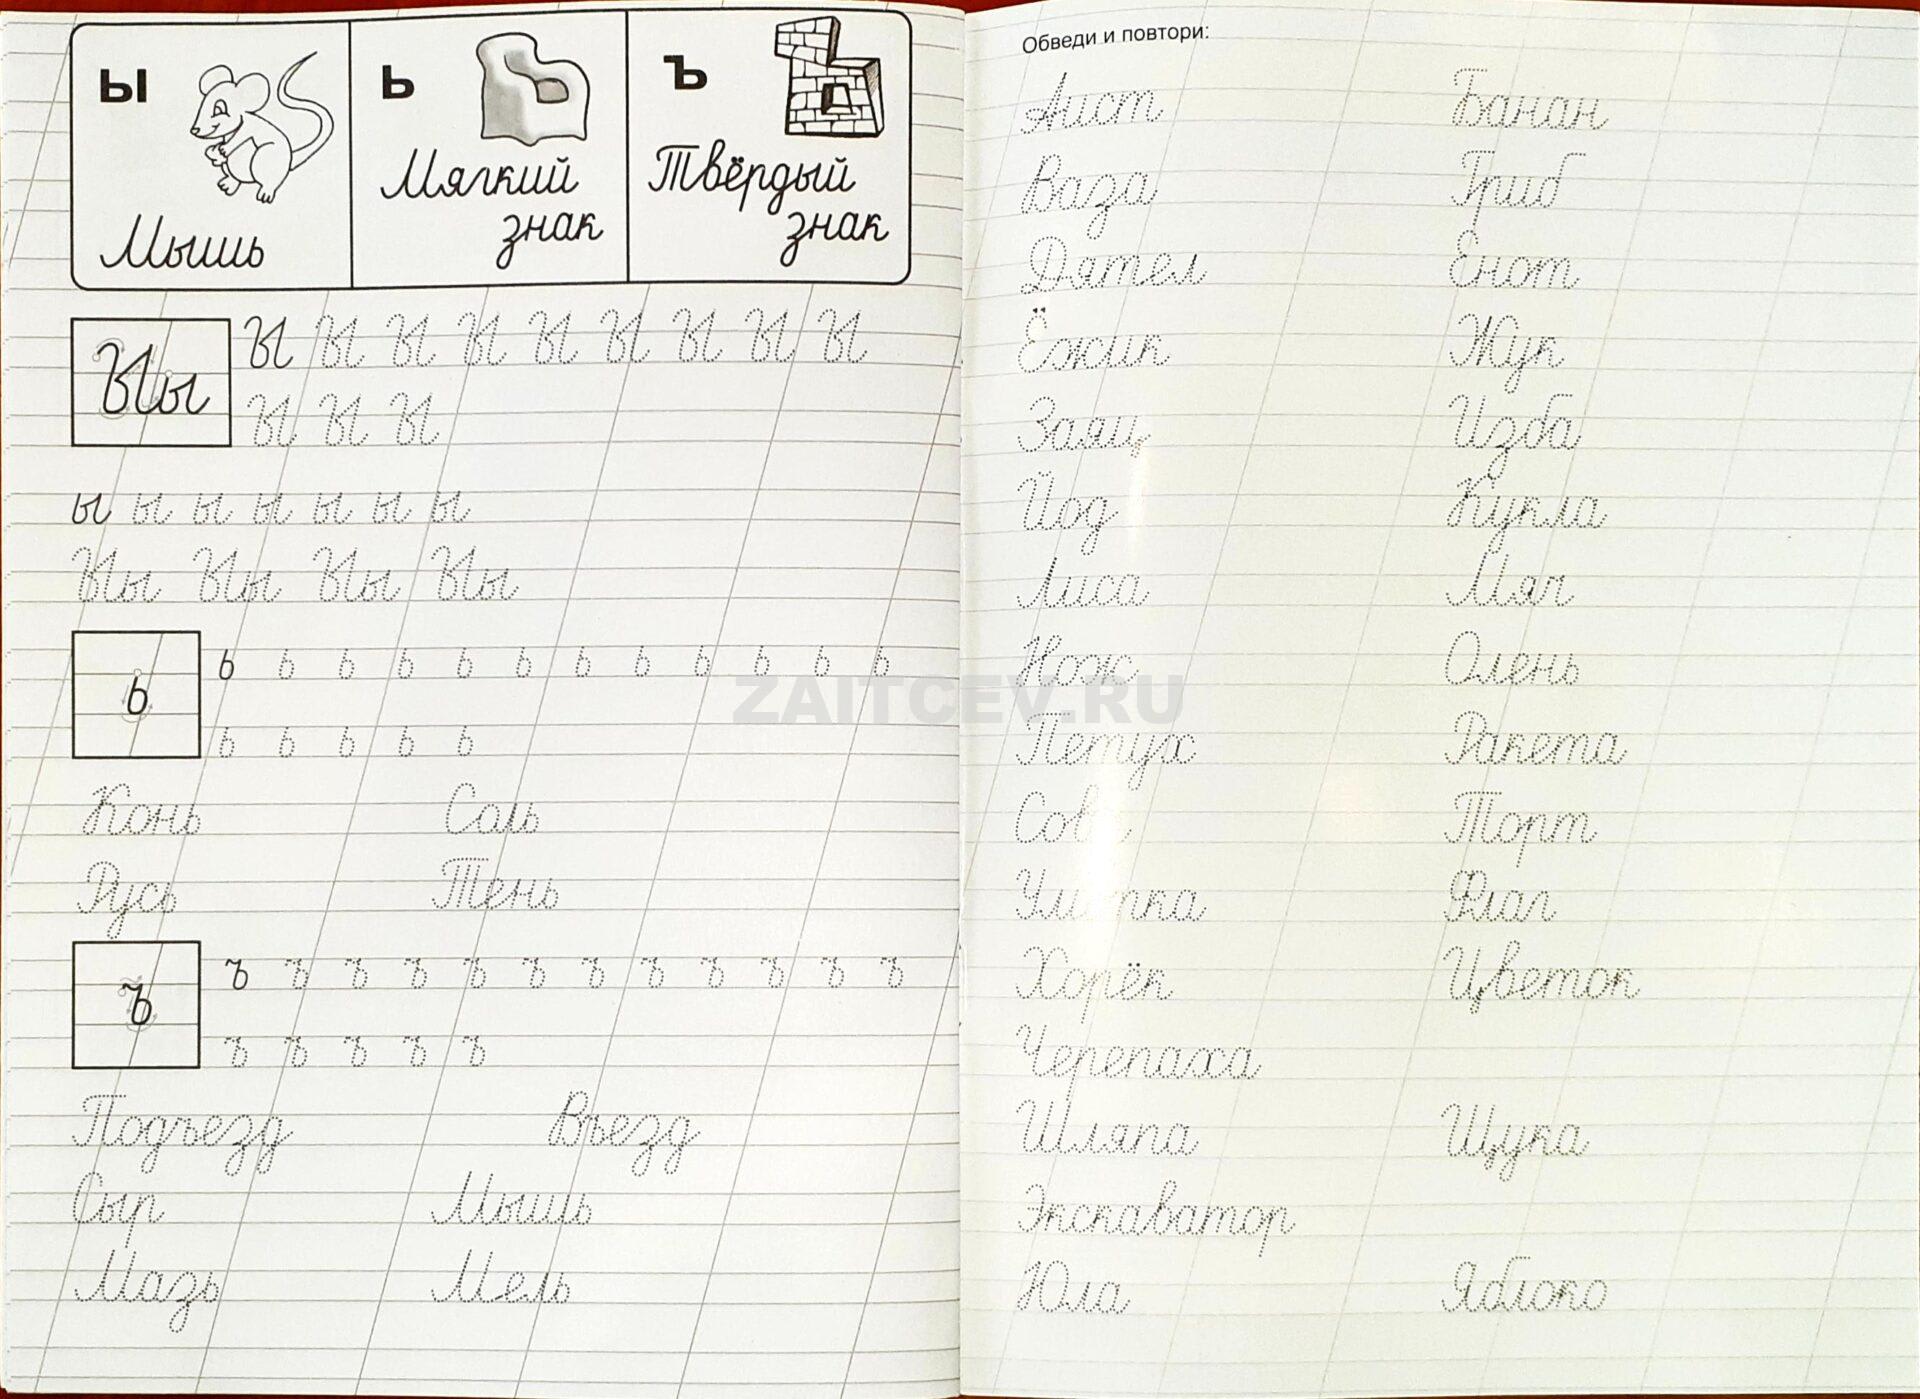 ы ь ъ
Мягкий Твёрдый
Мышь знак знак
Ыы Ы Ы Ы Ы Ы Ы Ы Ы Ы
Ы Ы Ы
ы ы ы ы ы ы ы
Ыы Ыы Ыы Ыы
ь ь ь ь ь ь ь ь ь ь ь ь ь
ь ь ь ь ь
Конь Соль
Русь Тень
ъ ъ ъ ъ ъ ъ ъ ъ ъ ъ ъ ъ ъ
ъ ъ ъ ъ ъ
Подъезд Въезд
Сыр Мышь
Мазь Мель
Обведи и повтори:
Аист Банан
Ваза Гриб
Дятел Енот
Ёжик Жук
Заяц Изба
Йод Кукла
Лиса Мяч
Нож Олень
Петух Ракета
Сова Торт
Улитка Флаг
Хорёк Цветок
Черепаха
Шляпа Щука
Экскаватор
Юла Яблоко
ZAITCEV.RU